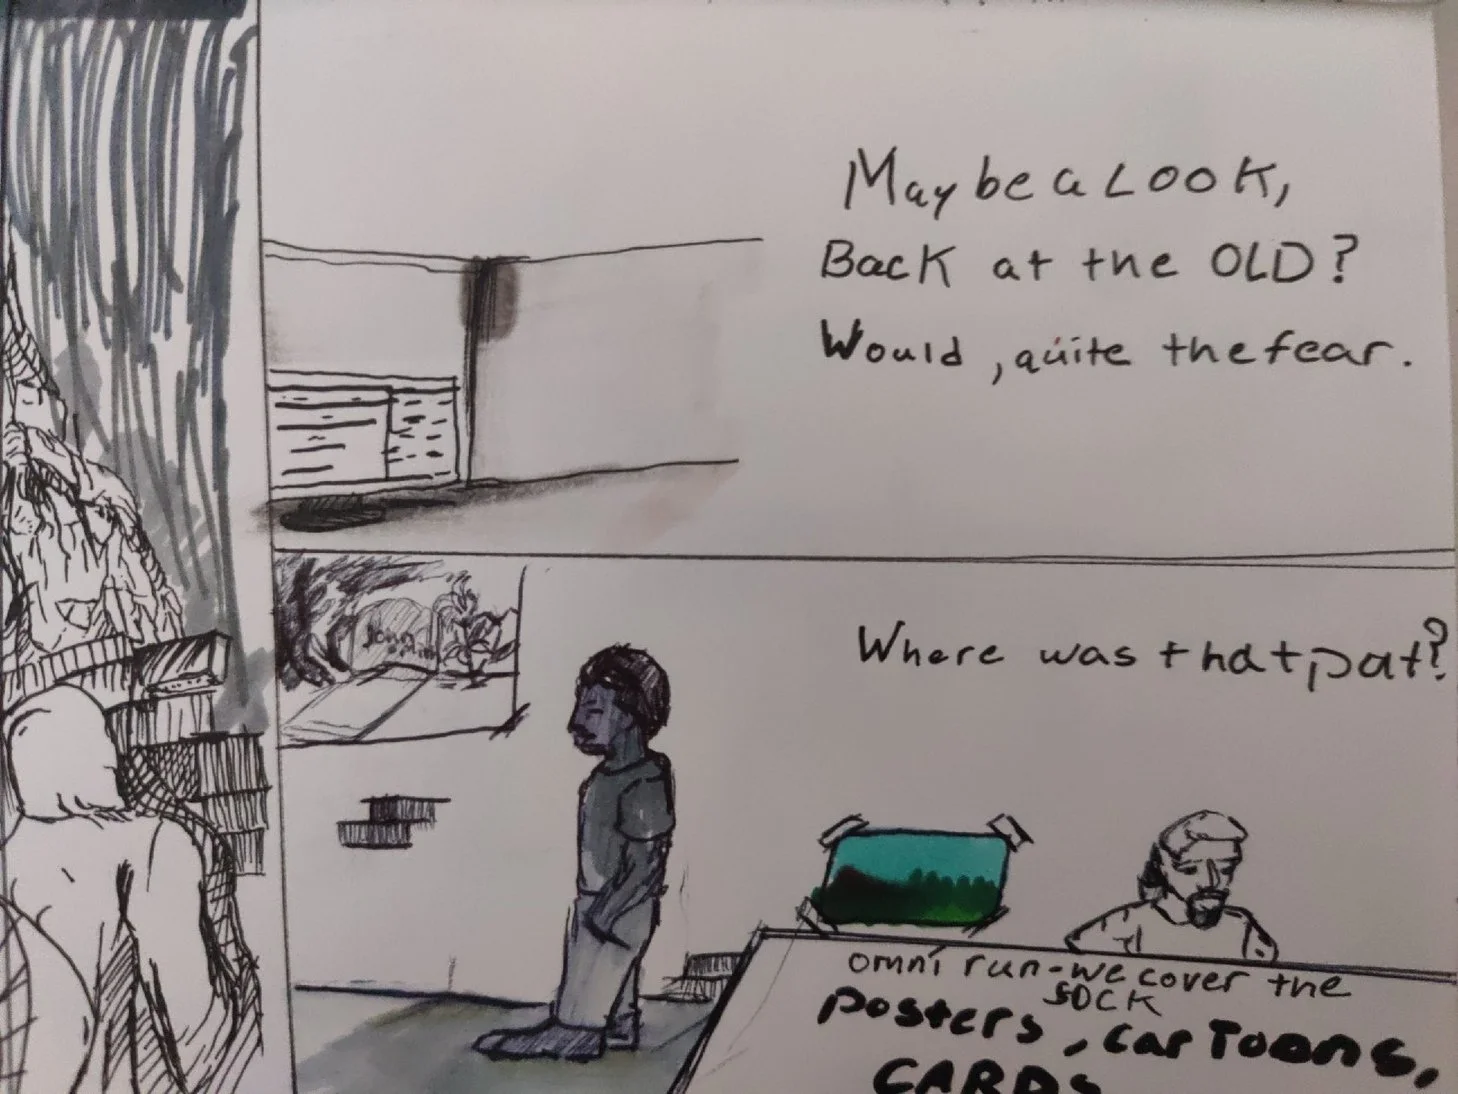 Maybe a LOOK,
Back at the OLD?
Would, quite the fear.
Where was that pat?
John
omni run-we cover the
SOCK
Posters, carToons,
CARDS